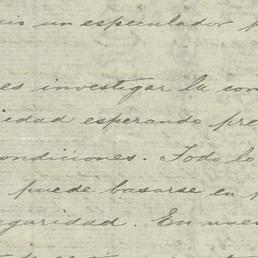 un especulador
es investigar la con
iedad esperando pre
condiciones. Todo lo
puede basarse en
eguridad. En